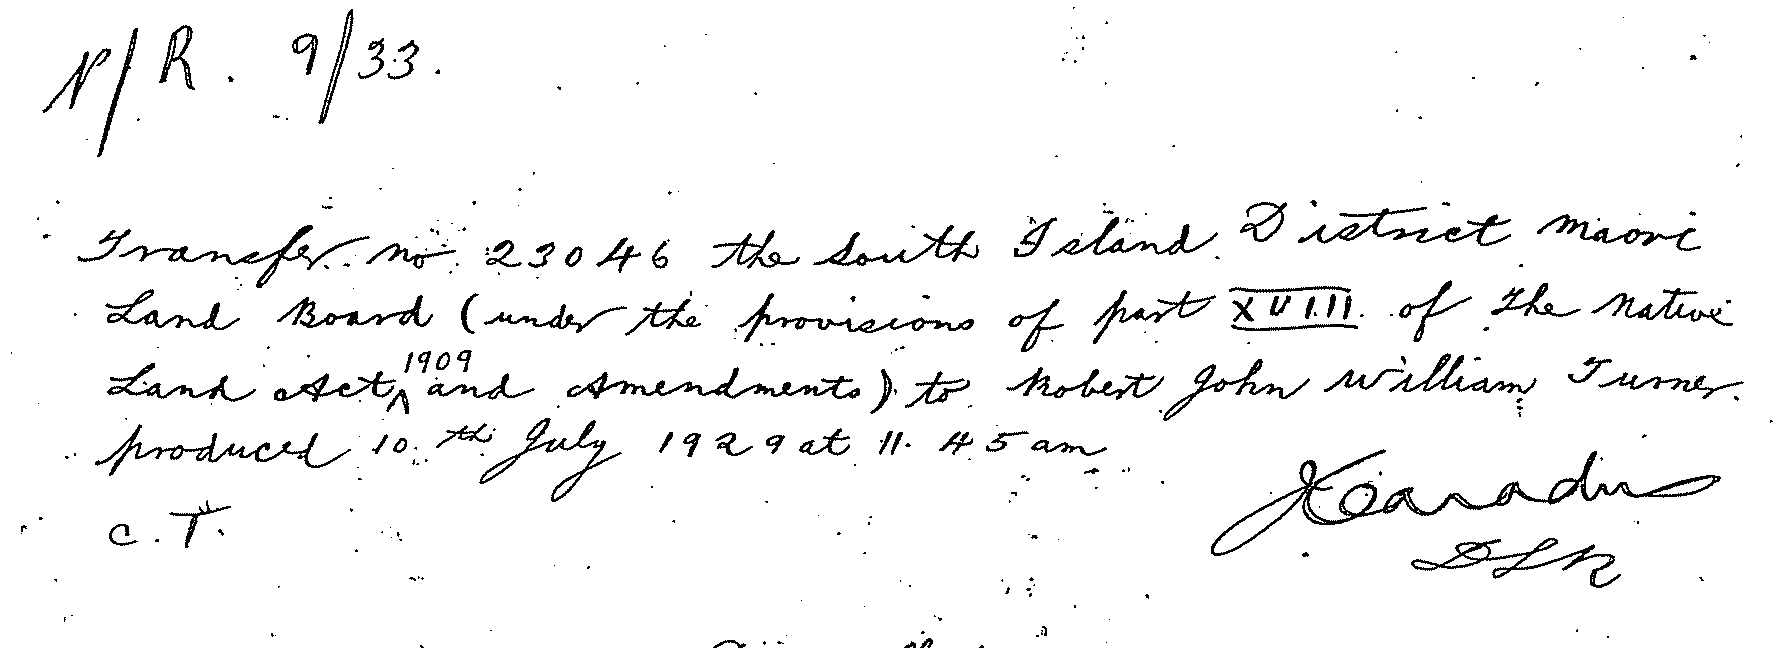 N/R. 9/33.
Transfer no 23046 the South Island District Maori
Land Board (under the provisions of part XVIII of The Native
Land Act 1909 and Amendments) to Robert John William Turner.
produced 10th July 1929 at 11.45 am
C.T.
DLR